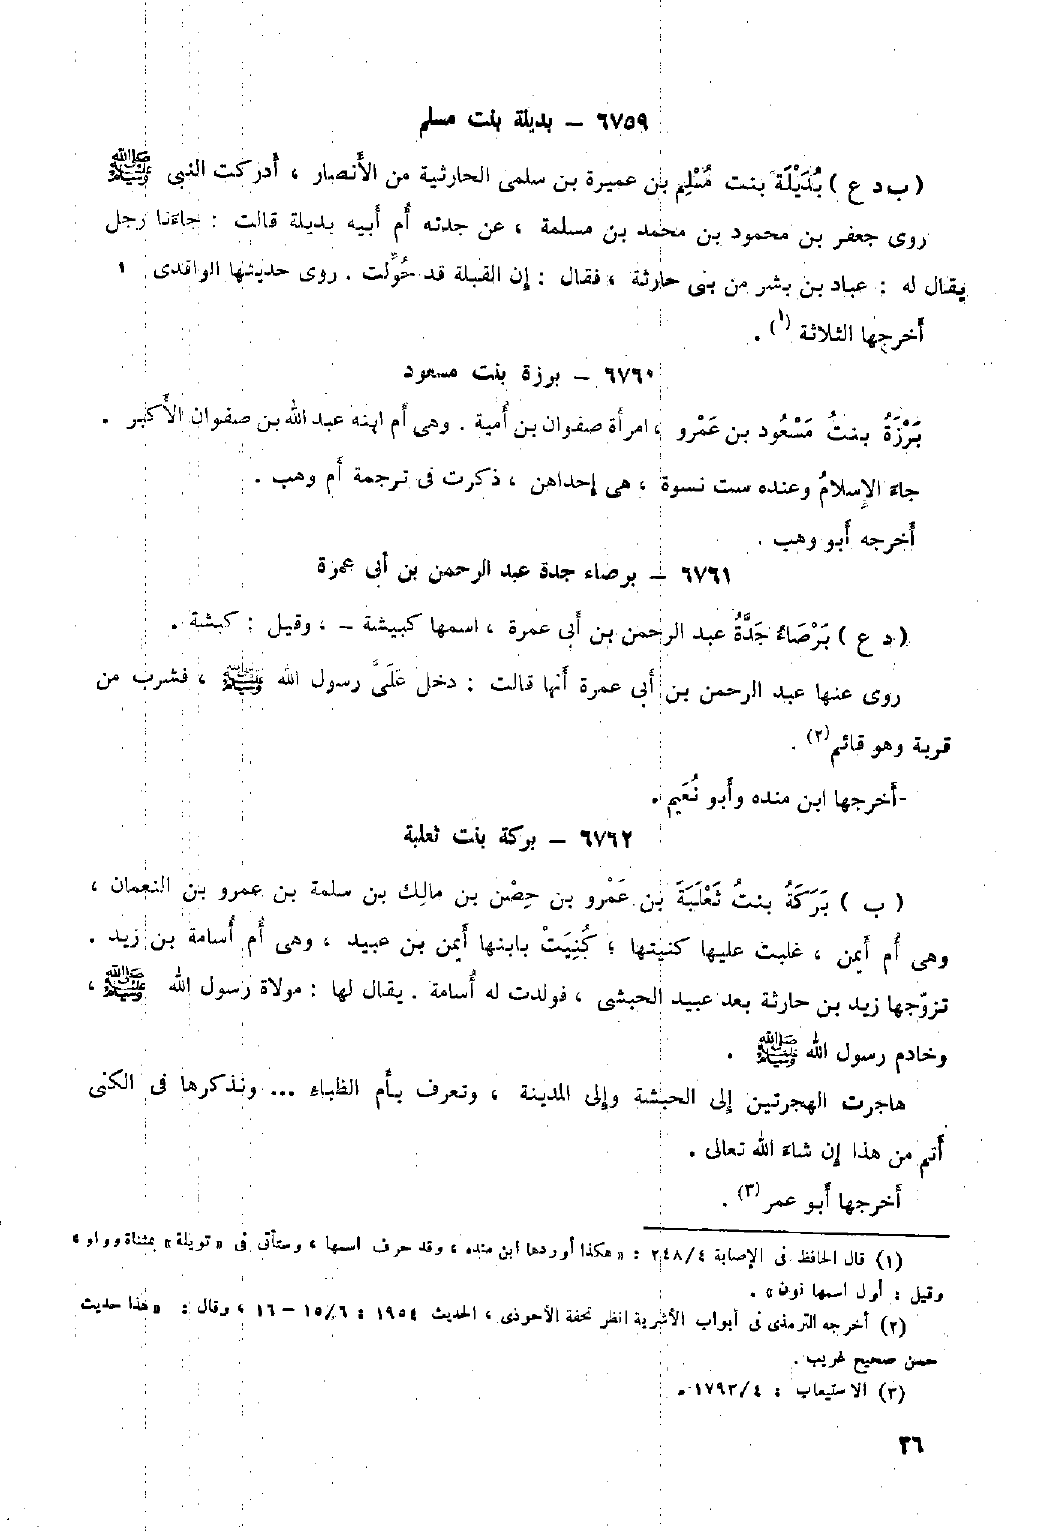 ٦٧٥٩ – بديلة بنت مسلم
( ب د ع ) بُدَيْلَة بنت مُسْلِم بن عميرة بن سلمى الحارثية من الأنصار ، أدركت النبى ﷺ
روى جعفر بن محمود بن محمد بن مسلمة ، عن جدته أُم أبيه بديلة قالت : جاءَنا رجل
يقال له : عباد بن بشر من بنى حارثة ، فقال : إن القبلة قد حُوِّلت . روى حديثها الواقدى ،
أخرجها الثلاثة (١) .
٦٧٦٠ – برزة بنت مسعود
بَرْزَةُ بنتُ مَسْعُود بن عَمْرو ، امرأة صفوان بن أُمية . وهى أم ابنه عبد الله بن صفوان الأَكبر .
جاءَ الإسلامُ وعنده ست نسوة ، هى إحداهن ، ذكرت فى ترجمة أُم وهب .
أخرجه أبو وهب .
٦٧٦١ – برصاء جدة عبد الرحمن بن أبى عمرة
( د ع ) بَرْصَاءُ جَدَّةُ عبد الرحمن بن أبى عمرة ، اسمها كبيشة – ، وقيل : كبشة .
روى عنها عبد الرحمن بن أبى عمرة أنها قالت : دخل عَلَىَّ رسول الله ﷺ ، فشرب من
قربة وهو قائم(٢) .
-أخرجها ابن منده وأبو نُعَيم .
٦٧٦٢ – بركة بنت ثعلبة
( ب ) بَرَكَةُ بنتُ ثَعْلَبَةَ بن عَمْرو بن حِصْن بن مالِك بن سلمة بن عمرو بن النعمان ،
وهى أُم أيمن ، غلبت عليها كنيتها ؛ كُنِيَتْ بابنها أيمن بن عبيد ، وهى أُم أُسامة بن زيد .
تزوّجها زيد بن حارثة بعد عبيد الحبشى ، فولدت له أُسامة . يقال لها : مولاة رسول الله ﷺ ،
وخادم رسول الله ﷺ .
هاجرت الهجرتين إلى الحبشة وإلى المدينة ، وتعرف بأم الظباء ... ونذكرها فى الكنى
أتم من هذا إن شاءَ الله تعالى .
أخرجها أبو عمر (٣) .
(١) قال الحافظ فى الإصابة ٢٤٨/٤ : « هكذا أوردها ابن منده ، وقد حرف اسمها ، وستأتى فى « تويلة » بمثناة وواو ،
وقيل : أول اسمها نون » .
(٢) أخرجه الترمذى فى أبواب الأشربة انظر تحفة الأحوذى ، الحديث ١٩٥٤ : ١٥/٦ – ١٦ ، وقال : « هذا حديث
حسن صحيح غريب .
(٣) الاستيعاب : ١٧٩٣/٤ .
٣٦